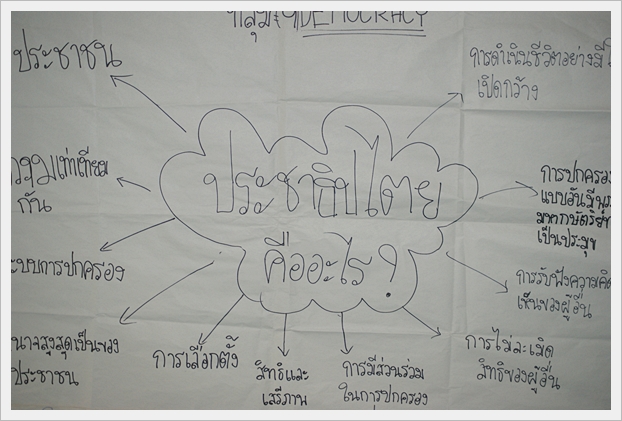 กลุ่มรัฐDEMOCRACY
ประชาชน
การดำเนินชีวิตอย่างมี
เปิดกว้าง
ประชาธิปไตย
คืออะไร?
ความเท่าเทียม
กัน
การปกครอง
แบบอันมีพระ
มหากษัตริย์ทรง
เป็นประมุข
ระบบการปกครอง
การรับฟังความคิด
เห็นของผู้อื่น
อำนาจสูงสุดเป็นของ
ประชาชน
การเลือกตั้ง
สิทธิและ
เสรีภาพ
การมีส่วนร่วม
ในการปกครอง
การไม่ละเมิด
สิทธิของผู้อื่น